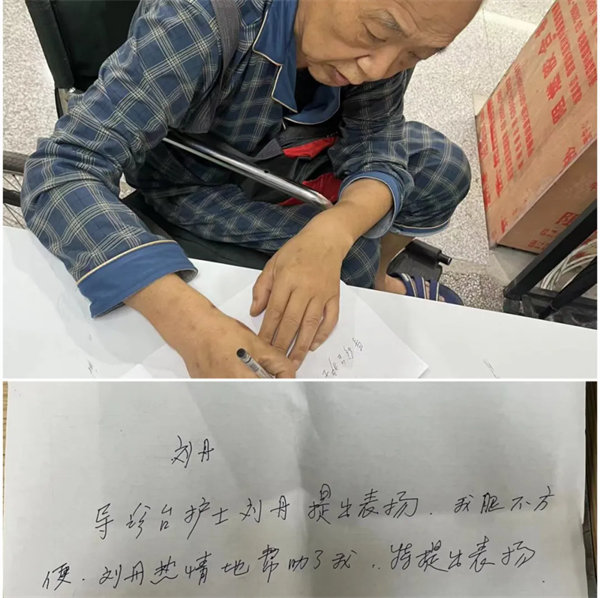 刘丹
导珍台护士刘丹提出表扬.我腿不方
便.刘丹热情地帮助了我..特提出表扬.